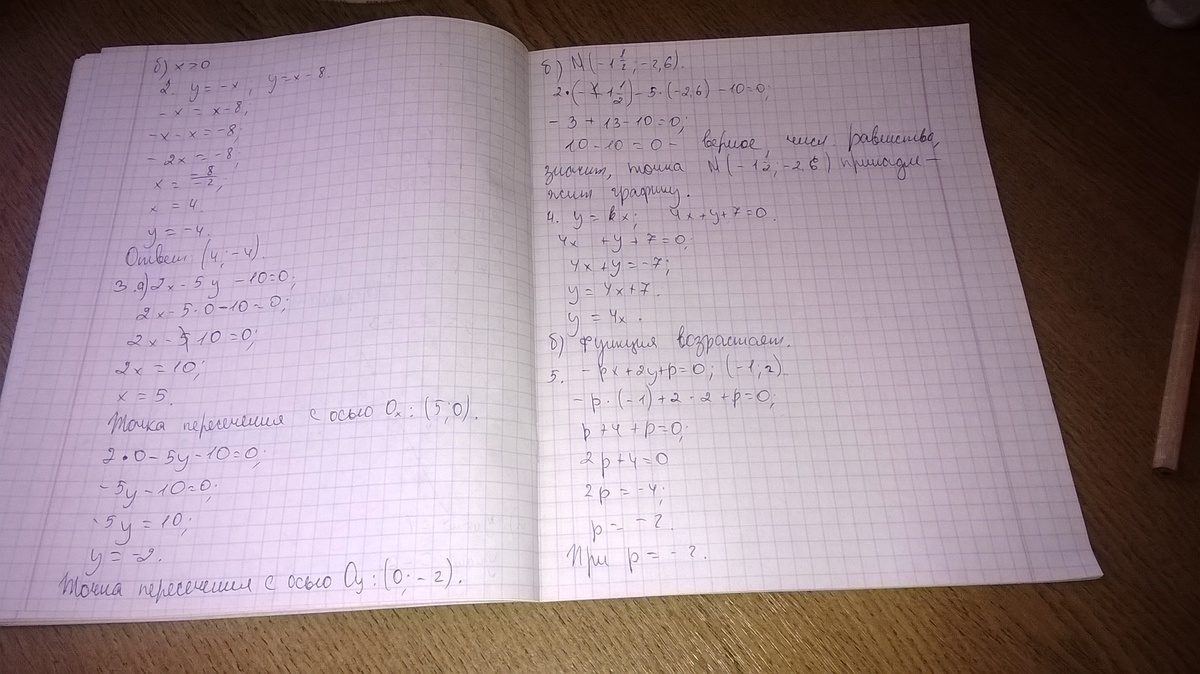 б) x>0
2. y = -x, y = x-8.
-x = x-8;
-x-x = -8;
-2x = -8;
x = -8/-2;
x = 4.
y = -4.
Ответ: (4; -4).
3. а) 2x - 5y - 10=0;
2x - 5·0 - 10 = 0;
2x - 10 = 0;
2x = 10;
x = 5.
Точка пересечения с осью Ox: (5; 0).
2·0 - 5y - 10=0;
-5y - 10=0;
-5y = 10;
y = -2.
Точка пересечения с осью Oy: (0; -2).
б) N(-1 1/2; -2,6).
2·(-1 1/2) - 5·(-2,6) - 10=0;
-3 + 13 - 10=0;
10-10 = 0 - верное числ. равенство,
значит, точка N(-1 1/2; -2,6) принадле-
жит графику.
4. y = kx; 4x+y+7=0.
4x +y+7=0;
4x+y = -7;
y = 4x+7.
y = 4x.
б) Функция возрастает.
5. -px+2y+p=0; (-1; 2).
-p·(-1)+2·2+p=0;
p+4+p=0;
2p+4=0
2p = -4;
p = -2.
При p = -2.